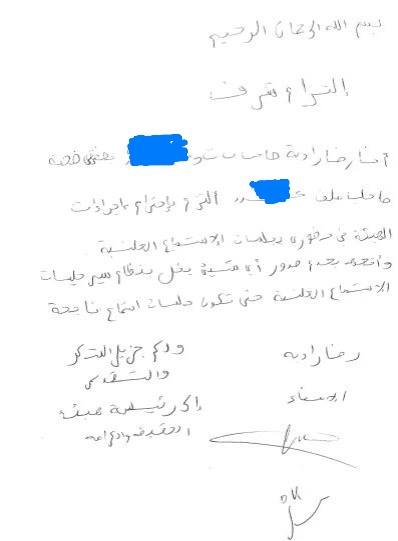 بسم الله الرحمان الرحيم
إلتزام شرف
أنا رضا رادية صاحبات
صاحب ملف عـدد إلتزم بإحترام إجراءات
الهيئة في حضوري جلسات الاستماع العلنية
وأتعهد بعدم صدور أي مشينة يخل بنظام سير جلسات
الاستماع العلنية حتى تكون جلسات استماع ناجحة
رضا رادية
الامضاء
ولكم جزيل الشكر
والتقدير
إلى رئيسة هيئة
الحقيقة والكرامة